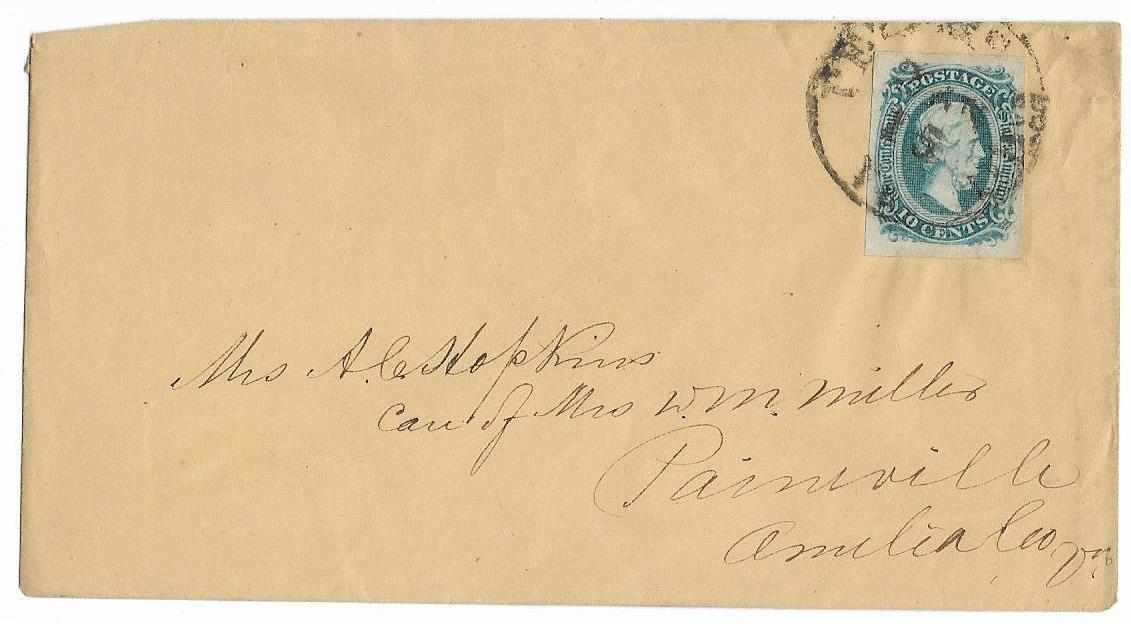 POSTAGE
The Confederate States of America
10 CENTS
Mrs A. C. Hopkins
Care of Mrs Wm. Miller
Paineville
Amelia Co. Va.